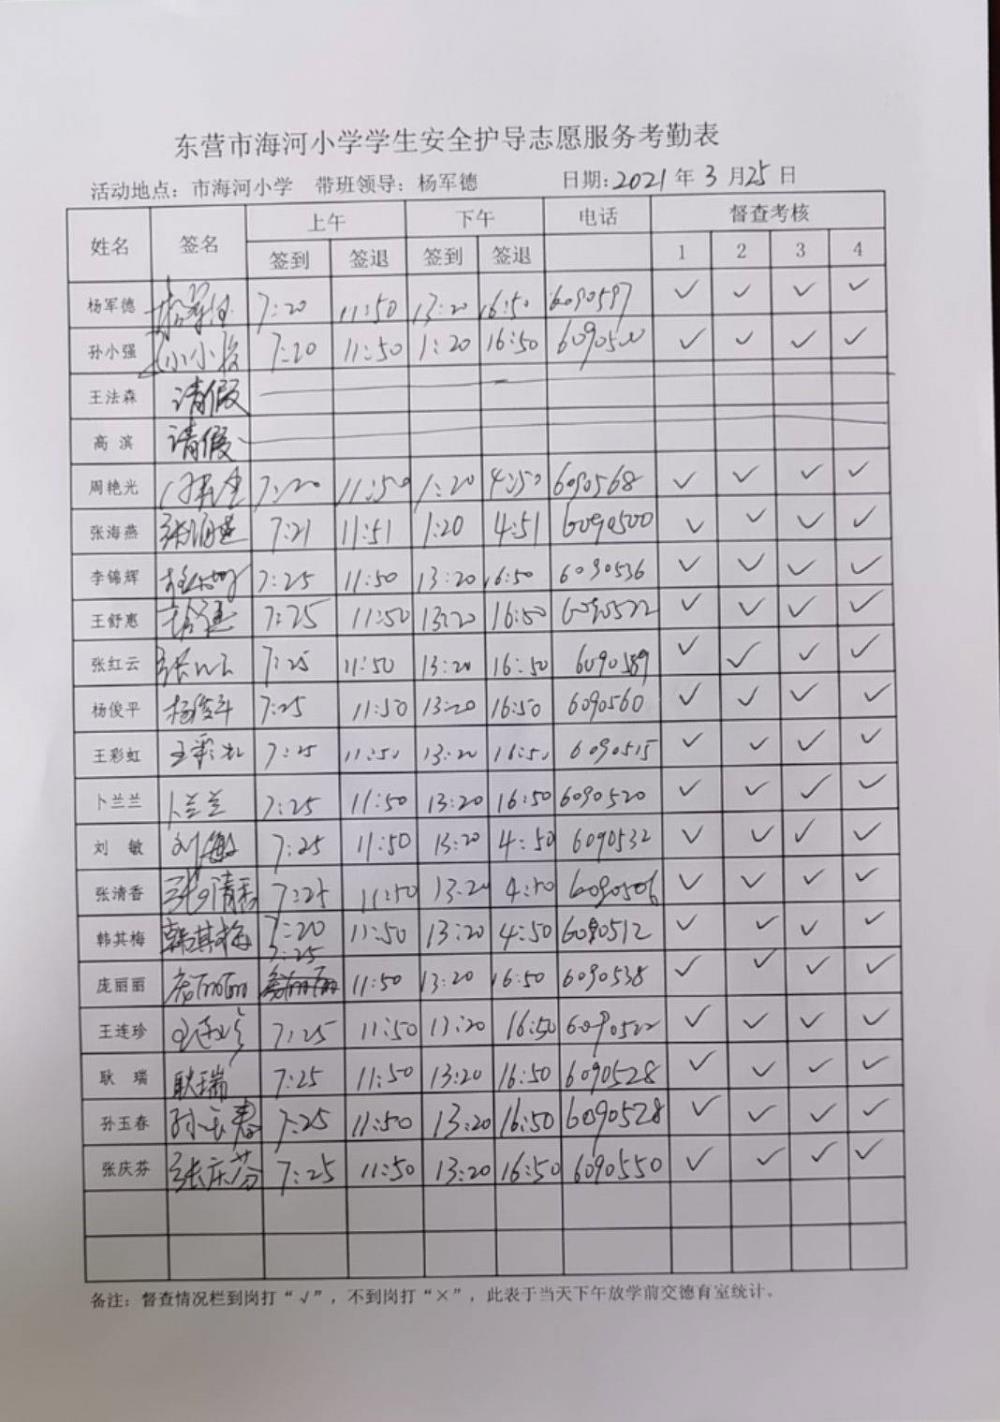 东营市海河小学学生安全护导志愿服务考勤表
活动地点：市海河小学 带班领导：杨军德 日期：2021年3月25日
姓名 签名 上午 下午 电话 督查考核
签到 签退 签到 签退 1 2 3 4
杨军德 7:20 11:50 13:20 16:50 6090597 ✓ ✓ ✓ ✓
孙小强 7:20 11:50 1:20 16:50 6090500 ✓ ✓ ✓ ✓
王法森 请假
高滨 请假
周艳光 7:20 11:50 1:20 4:50 6090568 ✓ ✓ ✓ ✓
张海燕 张海燕 7:21 11:51 1:20 4:51 6090500 ✓ ✓ ✓ ✓
李锦辉 7:25 11:50 13:20 16:50 6090536 ✓ ✓ ✓ ✓
王舒惠 7:25 11:50 13:20 16:50 6090522 ✓ ✓ ✓ ✓
张红云 张红云 7:25 11:50 13:20 16:50 6090589 ✓ ✓ ✓ ✓
杨俊平 杨俊平 7:25 11:50 13:20 16:50 6090560 ✓ ✓ ✓ ✓
王彩虹 王彩虹 7:25 11:50 13:20 16:50 6090515 ✓ ✓ ✓ ✓
卜兰兰 卜兰兰 7:25 11:50 13:20 16:50 6090520 ✓ ✓ ✓ ✓
刘敏 刘敏 7:25 11:50 13:20 4:50 6090532 ✓ ✓ ✓ ✓
张清香 张清香 7:25 11:50 13:20 4:50 6090506 ✓ ✓ ✓ ✓
韩其梅 韩其梅 7:20 11:50 13:20 4:50 6090512 ✓ ✓ ✓ ✓
庞丽丽 庞丽丽 7:25 11:50 13:20 16:50 6090538 ✓ ✓ ✓ ✓
王连珍 王连珍 7:25 11:50 13:20 16:50 6090522 ✓ ✓ ✓ ✓
耿瑞 耿瑞 7:25 11:50 13:20 16:50 6090528 ✓ ✓ ✓ ✓
孙玉春 孙玉春 7:25 11:50 13:20 16:50 6090528 ✓ ✓ ✓ ✓
张庆芬 张庆芬 7:25 11:50 13:20 16:50 6090550 ✓ ✓ ✓ ✓
备注：督查情况栏到岗打“√”，不到岗打“×”，此表于当天下午放学前交德育室统计。